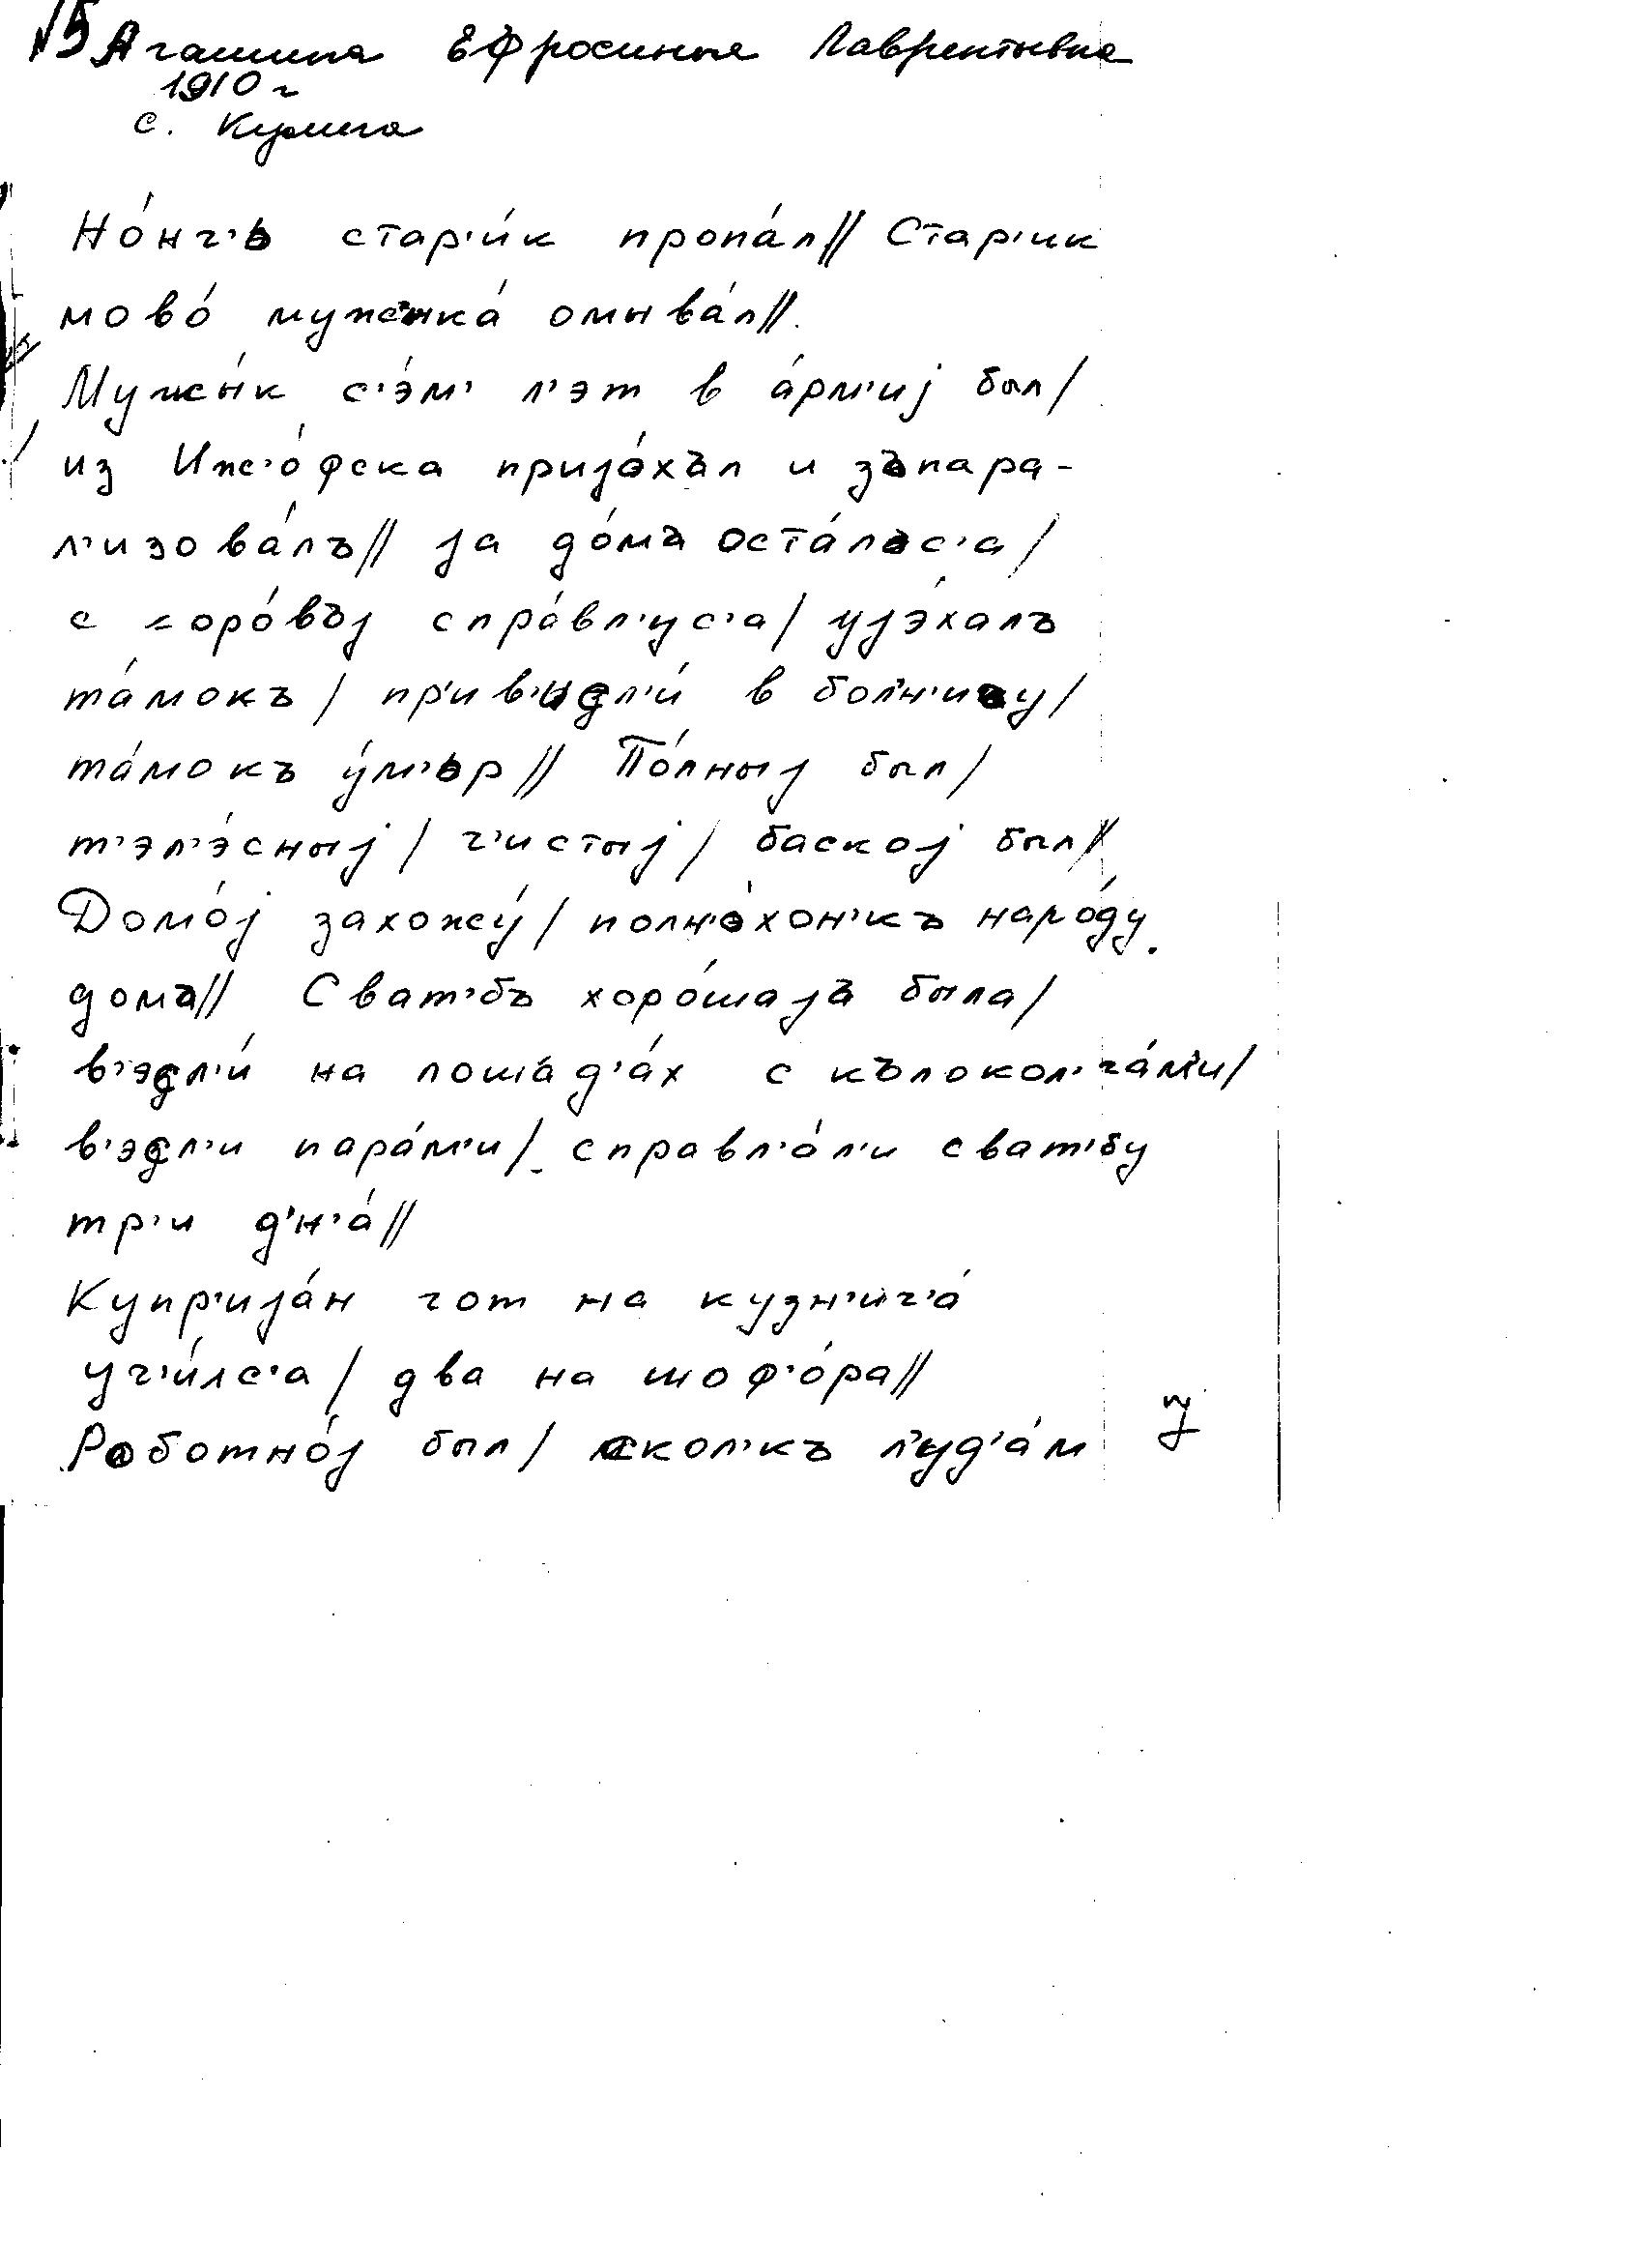 №5 Агашина Ефросинья Лаврентьевна
1910 г
с. Кулига
Но́нч'ь стар'и́к пропа́л// Стар'ик
мово́ мужыка́ омыва́л//
Мужы́к с'э́м' л'эт в а́рм'иj был/
из Иж'о́фска приjэ́хъл и зъпара-
л'изова́лъ// jа до́мъ оста́лъс'а/
с коро́въj спра́вл'ус'а/ уjэ́халъ
та́мокъ/ пр'ив'изл'и́ в бол'н'ицу/
та́мокъ у́м'ьр// По́лныj был/
т'эл'э́сныj/ ч'истыj/ баскоj был//
Домо́j захожу́/ полн'о́хон'къ наро́ду
домъ// Сват'бъ хоро́шаjъ была/
в'эзл'и́ на лошад'а́х с кълокол'ча́м'и/
в'эзл'и пара́м'и/ справл'а́л'и сват'бу
тр'и д'н'а́//
Купр'иjа́н гот на кузн'ич'а́
уч'и́лс'а/ два на шоф'о́ра//
Роботно́j был/ скол'къ л'уд'а́м